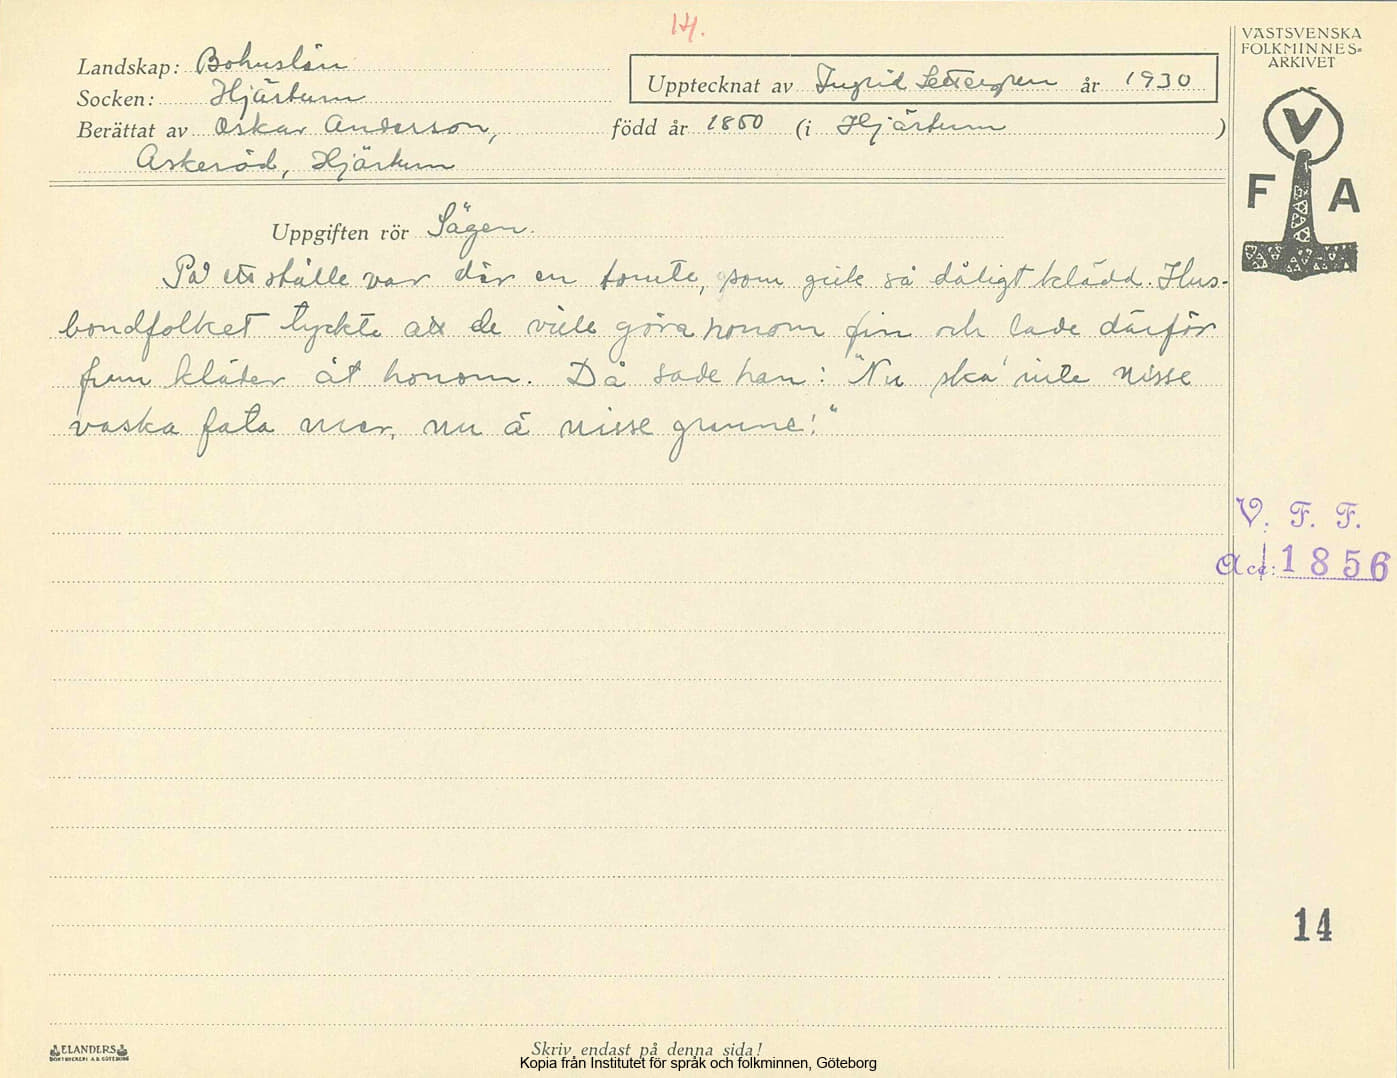 14.
VÄSTSVENSKA
FOLKMINNES-
ARKIVET
Landskap: Bohuslän
Upptecknat av Ingrid Settergren år 1930
Socken: Hjärtum
Berättat av Oskar Anderson, född år 1860 (i Hjärtum )
Askeröd, Hjärtum
V
F A
Uppgiften rör Sägen.
På ett ställe var där en tomte, som gick så dåligt klädd. Hus-
bondfolket tyckte att de ville göra honom fin och lade därför
fram kläder åt honom. Då sade han: "Nu ska' inte nisse
vaska fata mer, nu ä nisse granne!"
V. F. F.
Acc: 1856
14
ELANDERS
BOKTRYCKERI A.B. GÖTEBORG
Skriv endast på denna sida!
Kopia från Institutet för språk och folkminnen, Göteborg